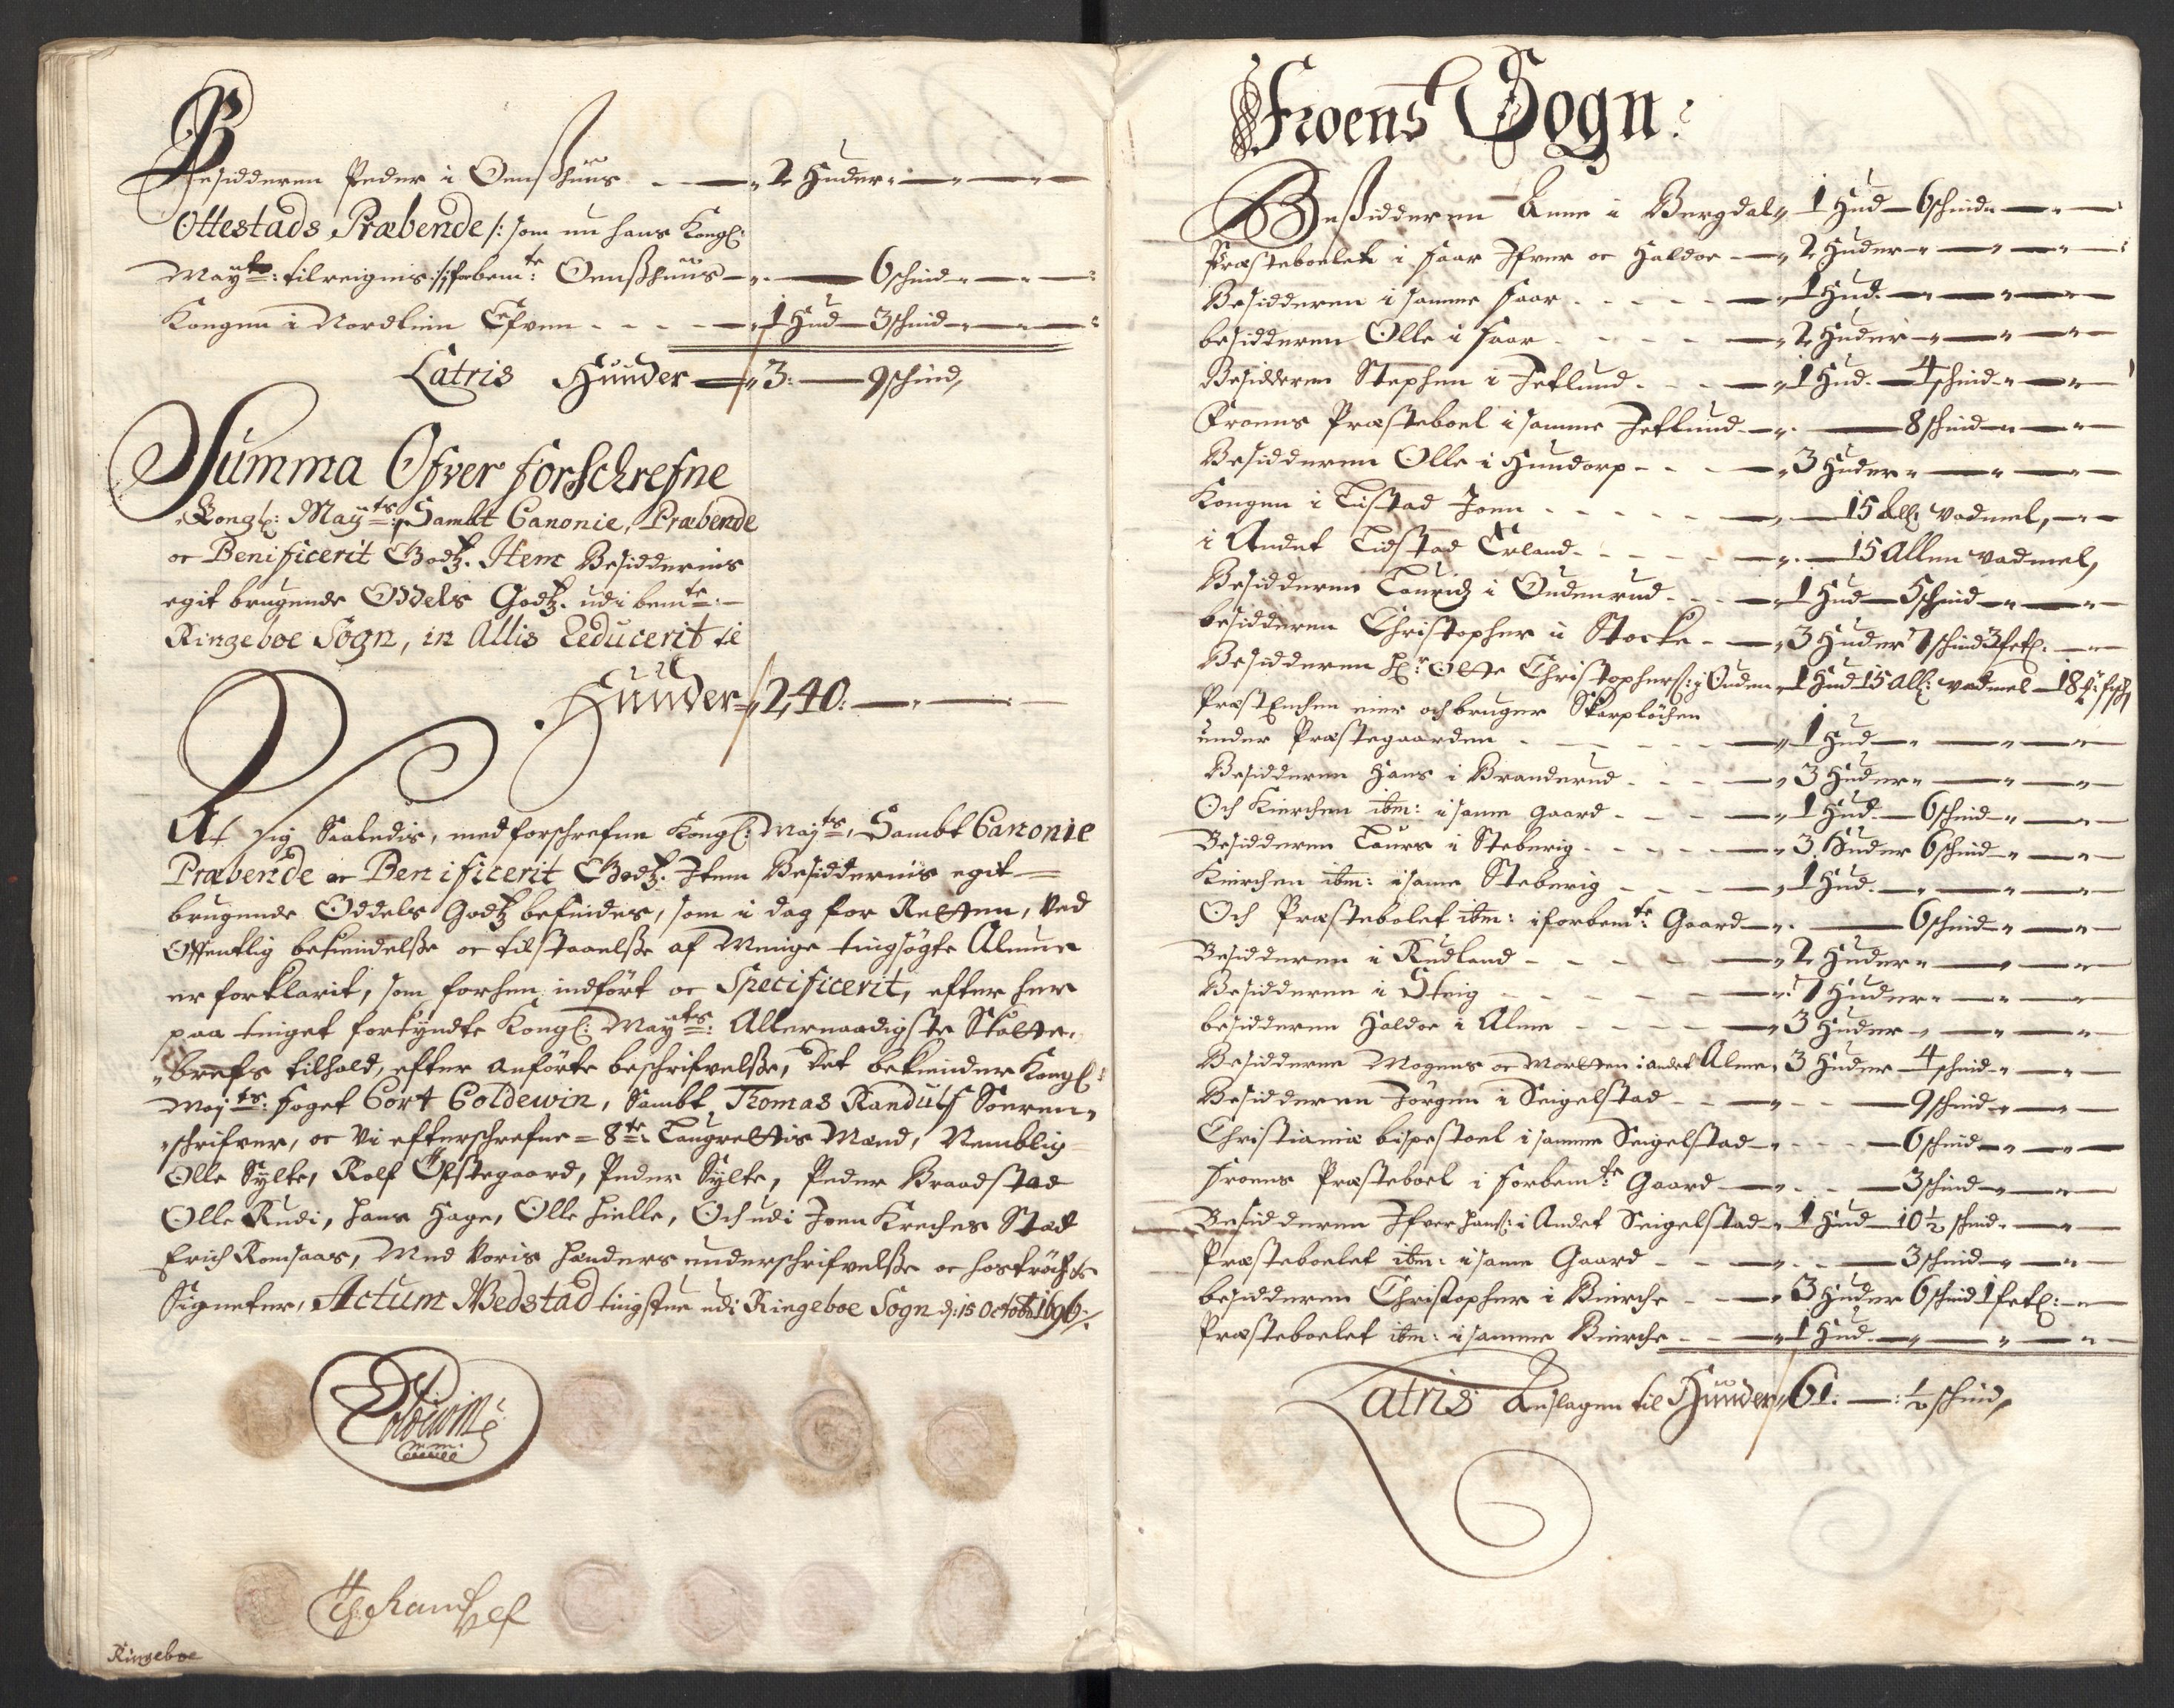 Besidderen Peder i Oenßhuus - - 2 Huder
Ottestads Præbende /: som nu hans Kongl:
Maÿts: tilreignis :/ i forbemte: Oenßhuus - 6 schind
Kongen i Nordliin Efven - - - - 1 Hud - 3 schind
Latris Huuder - 3: - 9 schind,
Summa Ofver forschrefne
Kongl: Maÿts: Sambt Canonie, Præbende
oc Benificerit Godtz. Item Besidderens
egit brugende Oddels Godtz. udi bemte:
Ringeboe Sogn, in Allis Reducerit til
Huuder - 240: -
At sig Saaledis, med forschrefne Kongl: Maÿts, Sambt Canonie
Præbende oc Benificerit Godtz. Item Besiddernis egit
brugende Oddels Godtz befindes, som i dag for Retten, ved
Offentlig bekiendelße oc tilstaaelße af Menige tingsögte Almue
er forklarit, som forhen indfört oc Specificerit, efter her
paa tinget forkyndte Kongl: Maÿts: Allernaadigste Skatte-
brefs tilhold, efter anförte beschrifvelße, Det bekiender Kongl:
Maÿts: foget Cort Coldewin, Sambt Thomas Randulf Soren-
schrifver, oc vi efterschrefne 8te Laugrettis Mænd, Nemblig
Olle Sylte, Rolf Ofstegaard, Peder Sylte, Peder Braadstad
Olle Rudi, Hans Hage, Olle Hielle, Och udi Joen Kreckes Stad
Erich Romsaas, Med Voris hænders underschrifvelße oc hoströchte
Signeter, Actum Wedstad tingstue udi Ringeboe Sogn d: 15 Octob: 1696.
Coldewin
mm:
Th: Randulf
Ringeboe
Froens Sogn:
Beßidderen Anne i Bergdal - 1 Hud - 6 schind
Præsteboelet i Faar Ifver oc Haldor - 2 Huder
Besidderen i samme Faar - - - 1 Hud
besidderen Olle i Faar - - - 2 Huder
Besidderen Stephen i Jetlund - - - 1 Hud - 4 schind
Froens Præsteboel i samme Jetlund - 8 schind
Besidderen Olle i Hundorp - - - 3 Huder
Kongen i Tistad Joen - - - - 15 All: vadmel,
i Andet Tidstad Erland - - - - 15 Allen vadmel,
Besidderen Lauridz i Oudenrud - - 1 Hud - 5 schind
besidderen Christopher i Stocke - - 3 Huder 7 schind 3 fetl:
Besidderen Hr: Otte Christophers: i Ouden - 1 Hud 15 All: vadmel - 18 fisch
Præst Enchen eier och bruger Skarplöchen
under Præstegaarden - - - - 1 Hud
Besidderen Hans i Branderud - - - 3 Huder
Och Kierchen ibm: i same gaard - - - 1 Hud - 6 schind
Besidderen Laurs i Steberig - - - - 3 Huder 6 schind
Kierchen ibm: i same Steberig - - - 1 Hud
Och Præstebolet ibm: i forbemte: Gaard - 6 schind
Besidderen i Rudland - - - - 2 Huder
Besidderen i Steig - - - - 7 Huder
besidderen Haldor i Alme - - - - 3 Huder
Besidderne Mogens oc Morten i andet Alme - 3 Huder 4 schind
Besidderen Jörgen i Seigelstad - - - 9 schind
Christiania bispestoel i samme Seigelstad - - - - 6 schind
Froens Præsteboel i forbemte: Gaard - - - 3 schind
Besidderen Ifver Hans: i Andet Seigelstad - 1 Hud - 10½ schind
Præsteboelet ibm: i same Gaard - - - 3 schind
besidderen Christopher i Kierche - - 3 Huder 6 schind 1 fetl:
Præsteboelet ibm: i samme Kierche - - 1 Hud
Latris Anslagen til Huuder - 61: - ½ schind,